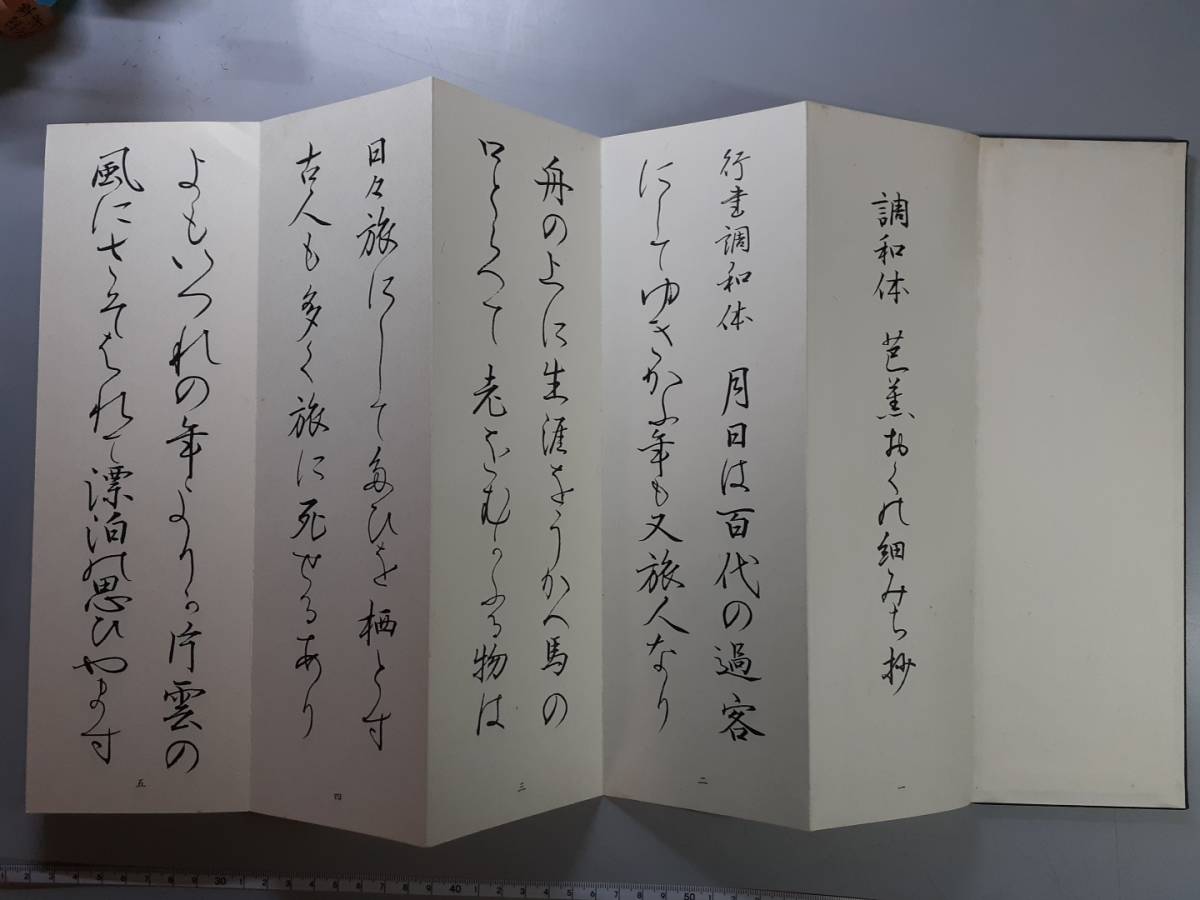 調和体 芭蕉おくの細みち抄
一
行書調和体 月日は百代の過客
にしてゆきかふ年も又旅人なり
二
舟の上に生涯をうかへ馬の
口とらへて老をむかふる物は
三
日々旅にしてたひを栖とす
古人も多く旅に死せるあり
四
よもいつれの年よりか片雲の
風にさそはれて漂泊の思ひやます
五
30 40 50